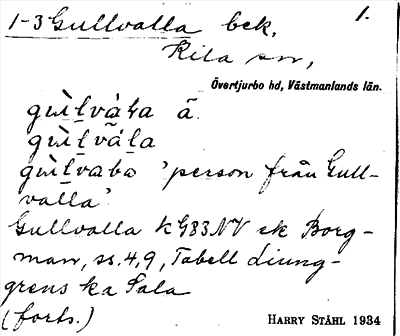 1-3 Gullvalla bek. 1.
Kila sn,
Övertjurbo hd, Västmanlands län.
gùlvàla ã.
gùlvála
gùlvabo 'person från Gull-
valla'
Gullvalla kG83NV ek Borg-
man, ss. 4, 9, Tabell Ljung-
grens ka Sala
(forts.)
HARRY STÅHL 1934